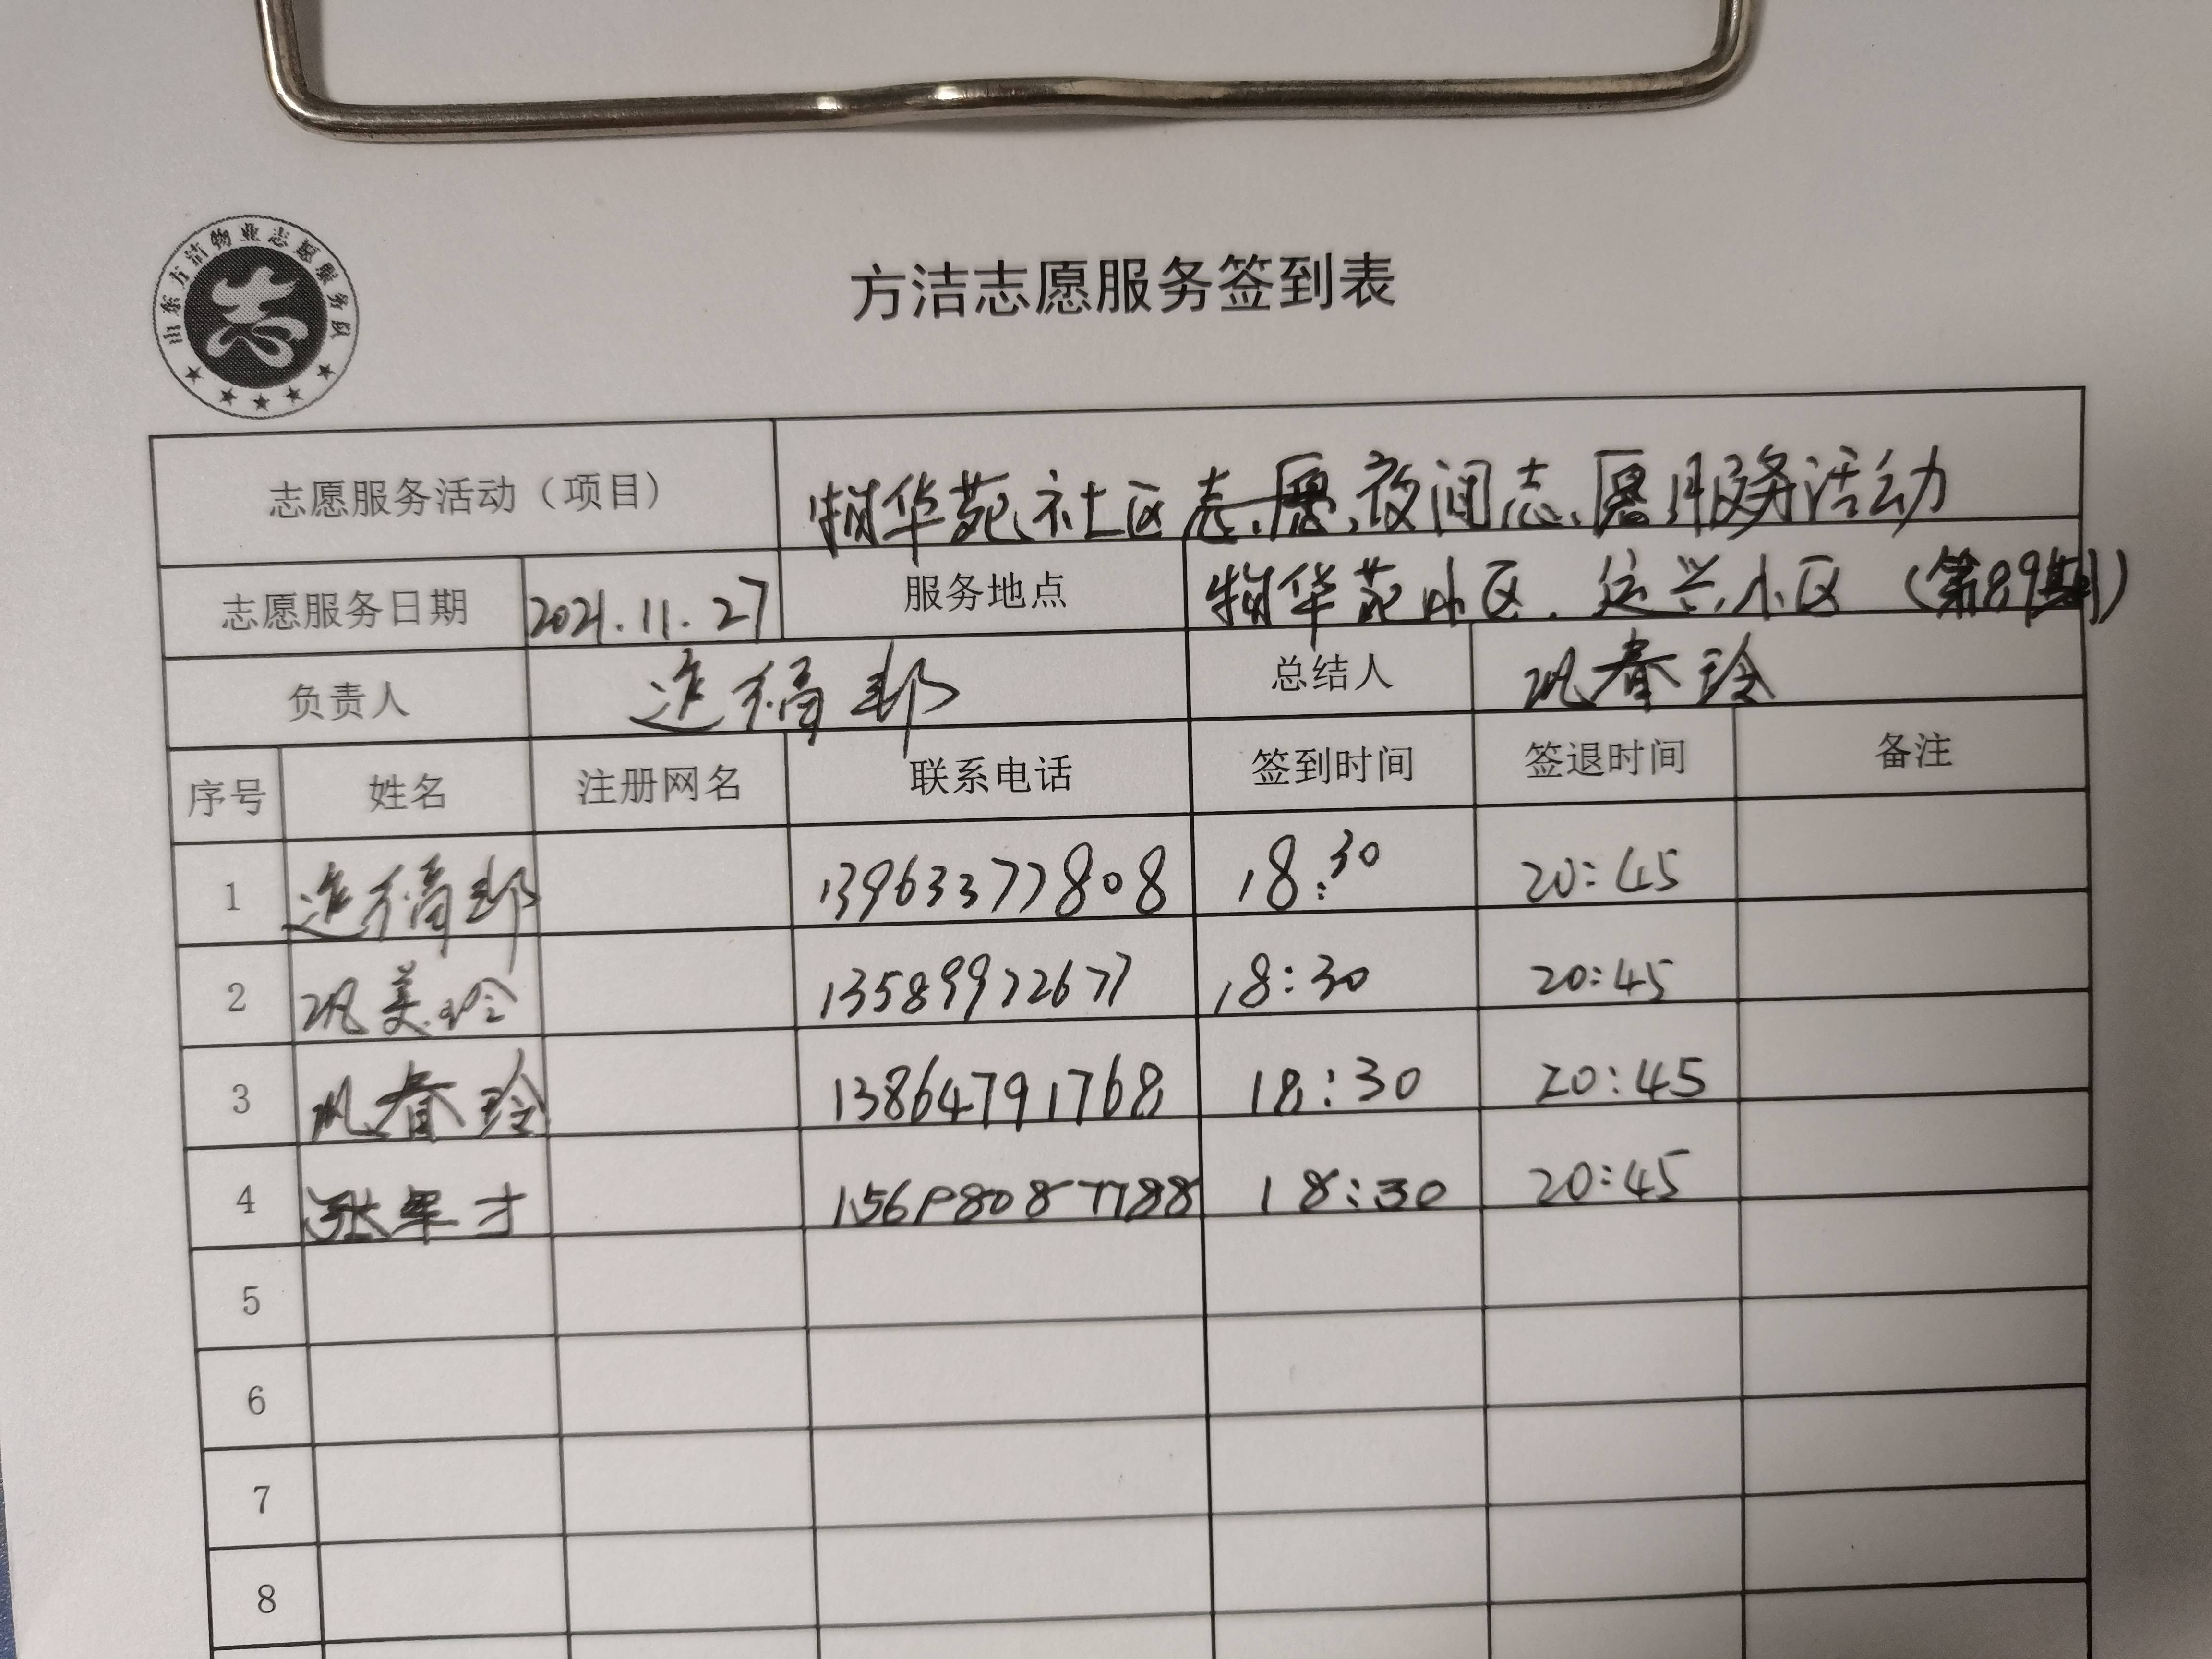 山东方洁物业志愿服务队
方洁志愿服务签到表
志愿服务活动（项目） 物华苑社区志愿夜间志愿服务活动
志愿服务日期 2021.11.27 服务地点 物华苑小区、运兴小区（第89期）
负责人 总结人 巩春玲
序号 姓名 注册网名 联系电话 签到时间 签退时间 备注
1 13963377808 18:30 20:45
2 巩美玲 13589972677 18:30 20:45
3 巩春玲 13864791768 18:30 20:45
4 张军才 18:30 20:45
5
6
7
8